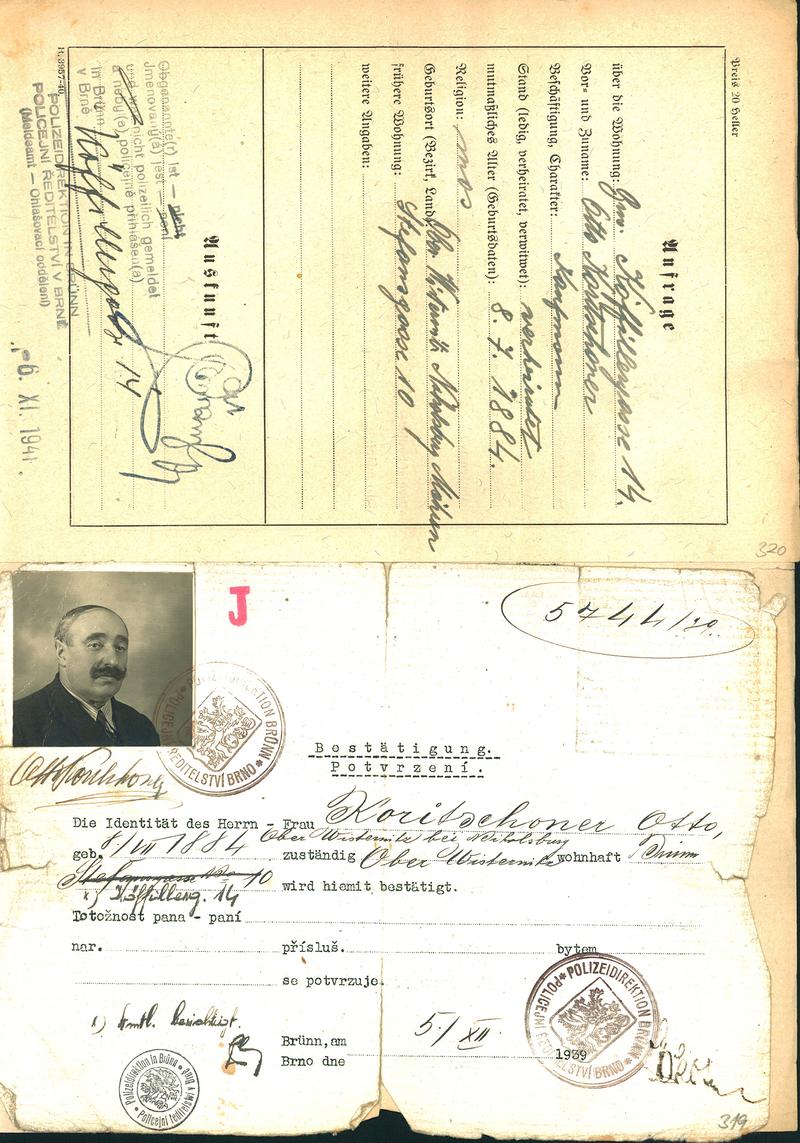 Preis 20 Heller
Anfrage
über die Wohnung: Köffillergasse 14.
Vor- und Zuname: Otto Koritschoner
Beschäftigung, Charakter: Kaufmann
Stand (ledig, verheiratet, verwitwet): verheiratet
mutmaßliches Alter (Geburtsdaten): 8. 7. 1884.
Religion: mos
Geburtsort (Bezirk, Land): Ober Wisternitz Nikolsburg Mähren
frühere Wohnung: Stefansgasse 10
weitere Angaben:
Auskunft
Obgenannte(r) ist — nicht
Jmenovaný(á) jest — není
und wird nicht polizeilich gemeldet
a neby(a) policejně přihlášen(a)
in Brünn
v Brně
14
POLIZEIDIREKTION IN BRÜNN
POLICEJNÍ ŘEDITELSTVÍ V BRNĚ
(Meldeamt — Ohlašovací oddělení)
-6. XI. 1941
320
J
5744/39.
POLIZEIDIREKTION BRÜNN
POLICEJNÍ ŘEDITELSTVÍ BRNO
Bestätigung.
Potvrzení.
Die Identität des Herrn - Frau Koritschoner Otto,
Ober Wisternitz bei Nikolsburg
geb. 8/VII 1884 zuständig Ober Wisternitz wohnhaft Brünn
Stefansgasse No 10 wird hiemit bestätigt.
x) Köffillerg. 14
Totožnost pana - paní
nar. přísluš. bytem
se potvrzuje.
x) Amtl. berichtigt.
Brünn, am 5./XII 1939
Brno dne
POLIZEIDIREKTION BRÜNN
POLICEJNÍ ŘEDITELSTVÍ BRNO
Polizeidirektion in Brünn
Policejní ředitelství v Brně
319